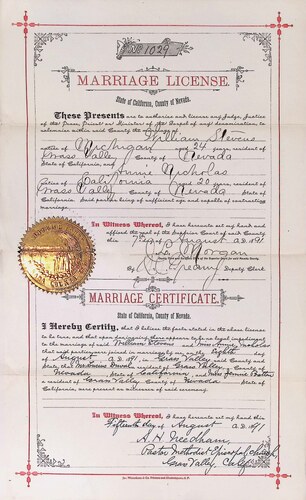 No 1029
MARRIAGE LICENSE.
State of California, County of Nevada.
These Presents are to authorize and license any Judge, Justice
of the Peace, Priest or Minister of the Gospel of any denomination, to
solemnize within said County the marriage of William
native of Michigan aged 24 years, resident of
Grass Valley County of Nevada
State of California, and Annie Nicholas
native of California aged 20 resident of
Grass Valley County of Nevada State of
California. Said parties being of sufficient age and capable of contracting
marriage.
In Witness Whereof, I have hereunto set my hand and
affixed the seal of the Superior Court of said County
this 7 day of August A.D. 1891
Morgan
By Deputy Clerk
MARRIAGE CERTIFICATE.
State of California, County of Nevada.
I Hereby Certify, that I believe the facts stated in the above license
to be true, and that upon due inquiry there appears to be no legal impediment
to the marriage of said William and Miss Annie Nicholas
that said parties were joined in marriage by me on the eighth day
of August A.D. 1891 in Grass Valley County and
State; that a resident of Grass Valley County of
Nevada State of California and Miss
a resident of Grass Valley County of Nevada State of
California, are present as witnesses of said ceremony.
In Witness Whereof, I have hereunto set my hand this
Fifteenth Day of August A.D. 1891
A. H. Needham,
Pastor Methodist Episcopal Church,
Grass Valley, Calif.